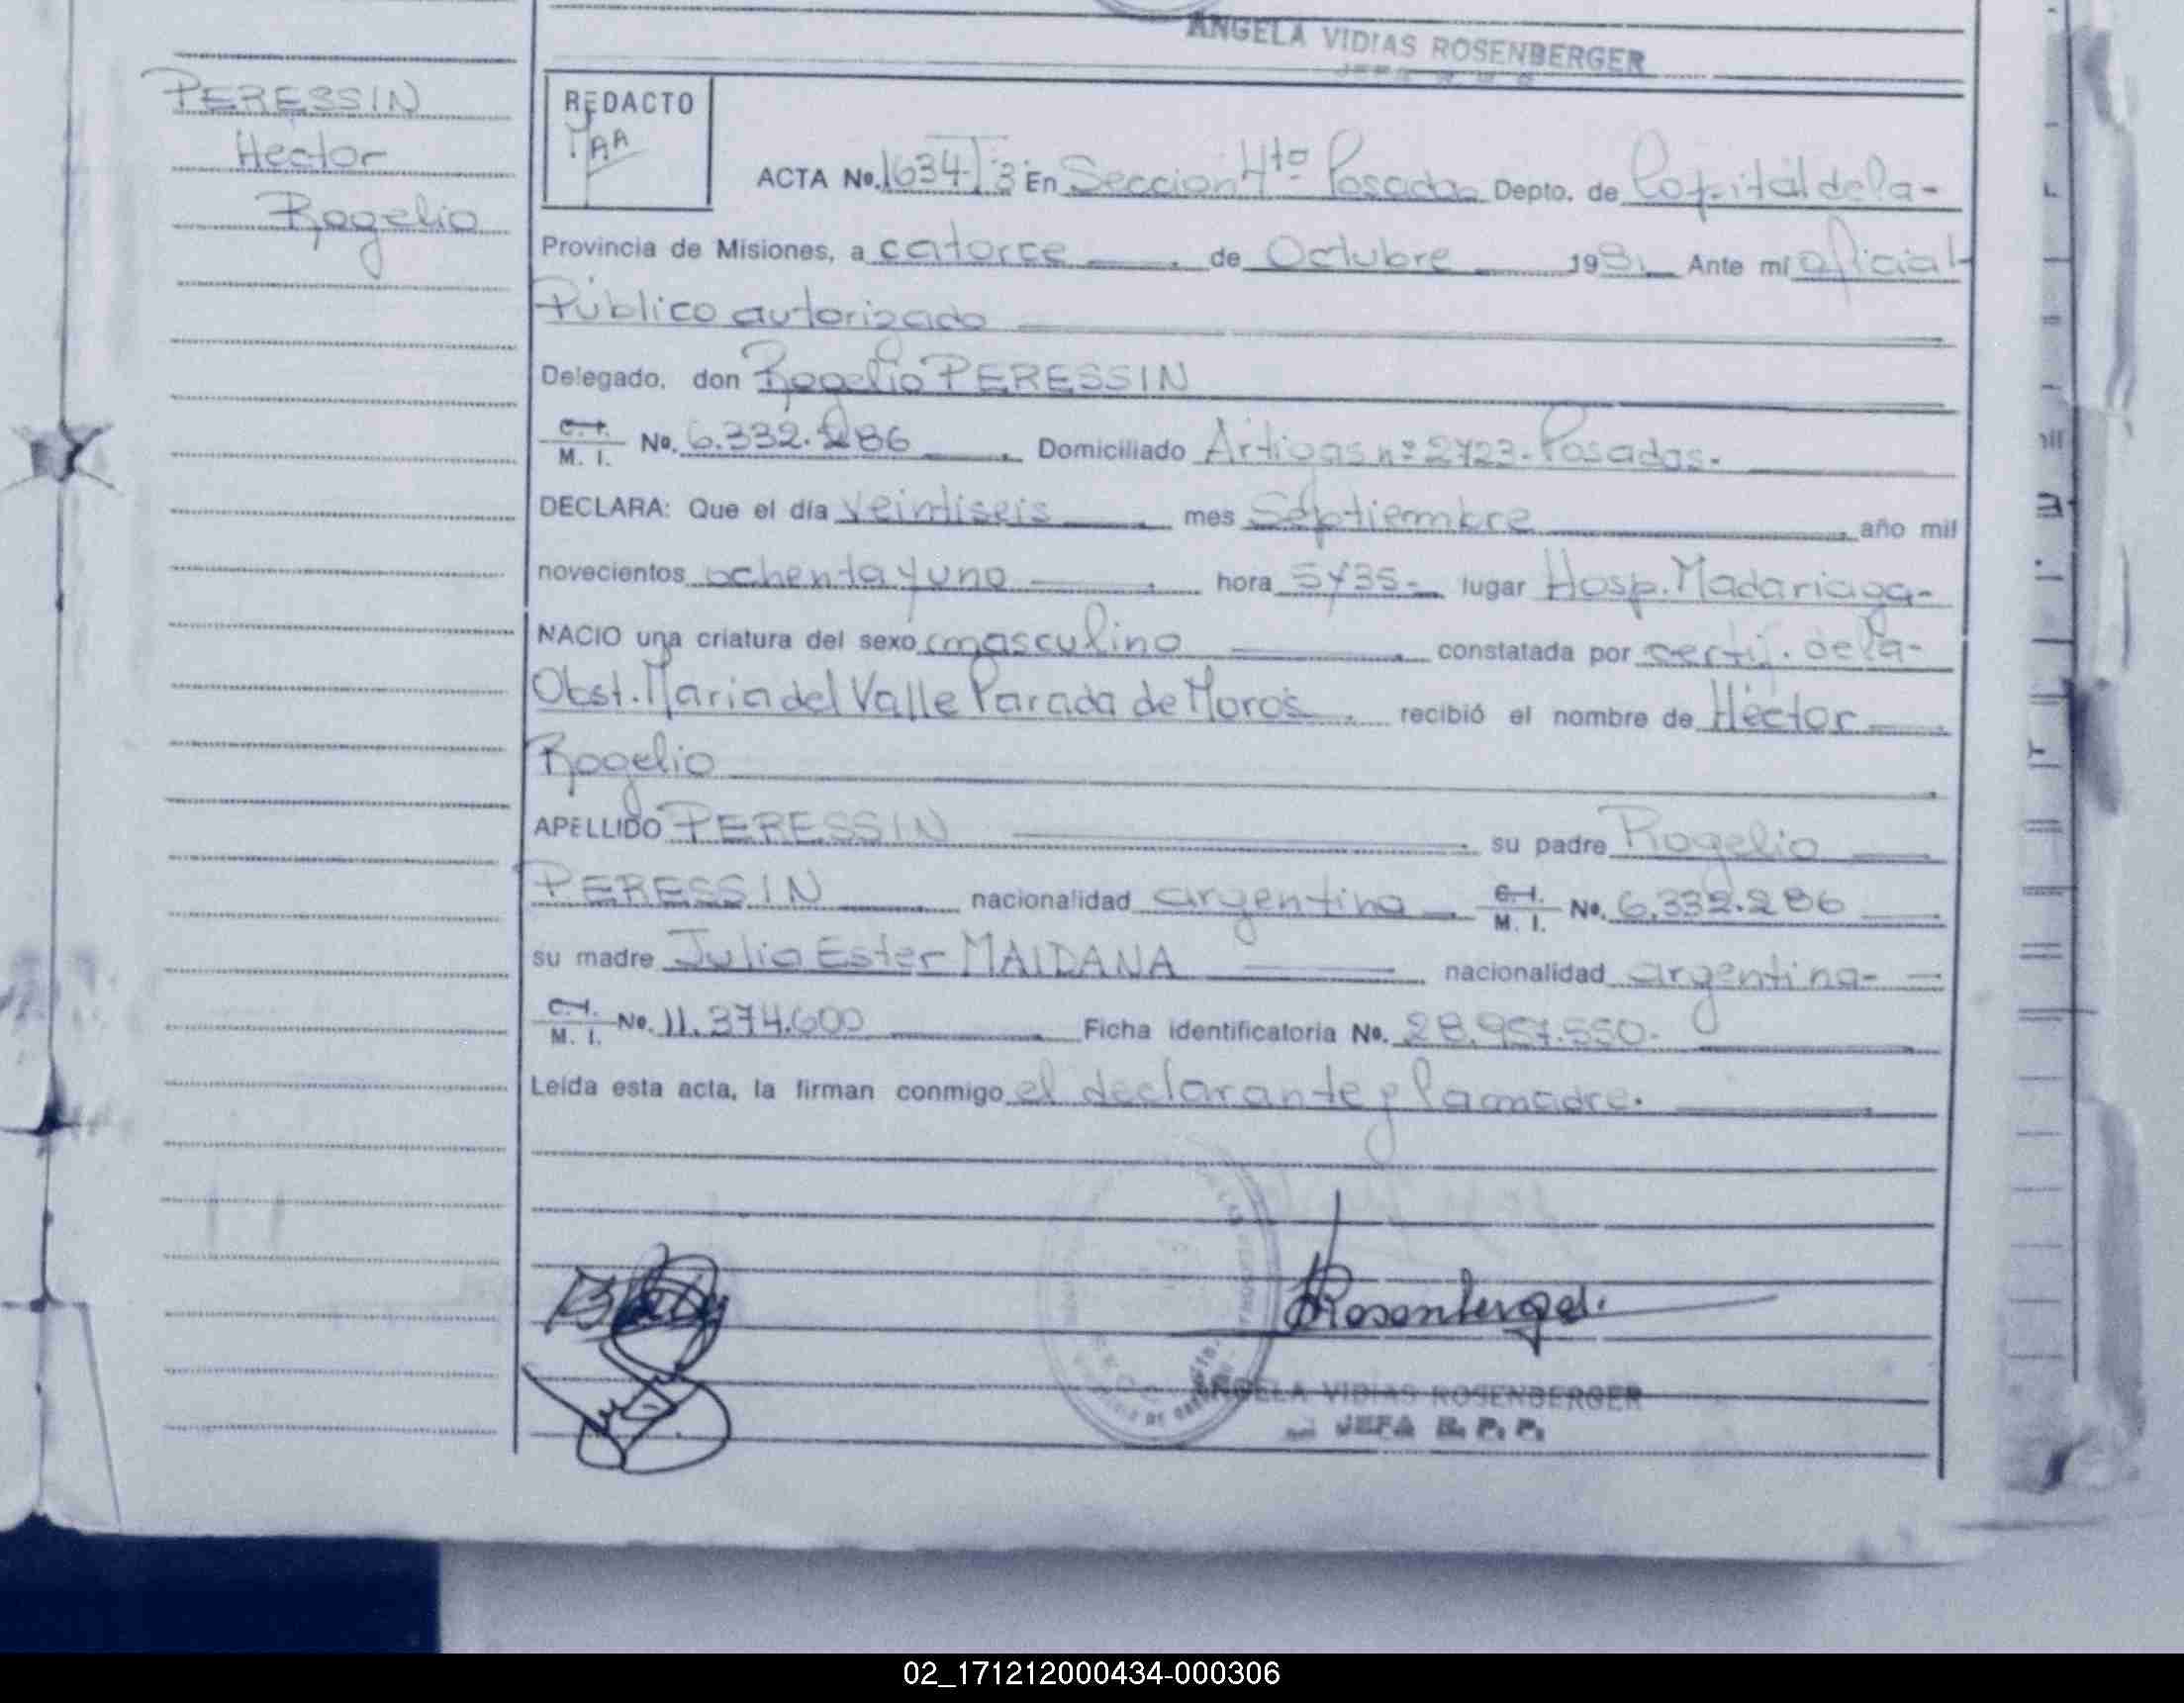 ANGELA VIDIAS ROSENBERGER
PERESSIN
Hector
Rogelio
REDACTO
ACTA No. 1634 T 3 En Seccion 4to Posadas Depto. de Capital de la-
Provincia de Misiones, a catorce de Octubre 1981 Ante mí oficial
Público autorizado
Delegado, don Rogelio PERESSIN
C. I.
M. I. No. 6.332.286 Domiciliado Artigas nº 2723- Posadas.
DECLARA: Que el día veintiseis mes Septiembre año mil
novecientos ochenta y uno hora 5y35- lugar Hosp. Madariaga-
NACIO una criatura del sexo masculino constatada por certif. de la-
Obst. Maria del Valle Parada de Moros recibió el nombre de Héctor
Rogelio
APELLIDO PERESSIN su padre Rogelio
PERESSIN nacionalidad argentina C. I. M. I. No. 6.332.286
su madre Julia Ester MAIDANA nacionalidad argentina-
C. I.
M. I. No. 11.374.600 Ficha identificatoria No. 28.957.550-
Leída esta acta, la firman conmigo el declarante y la madre.
Rosenberger
ANGELA VIDIAS ROSENBERGER
JEFA R. P. P.
02_171212000434-000306